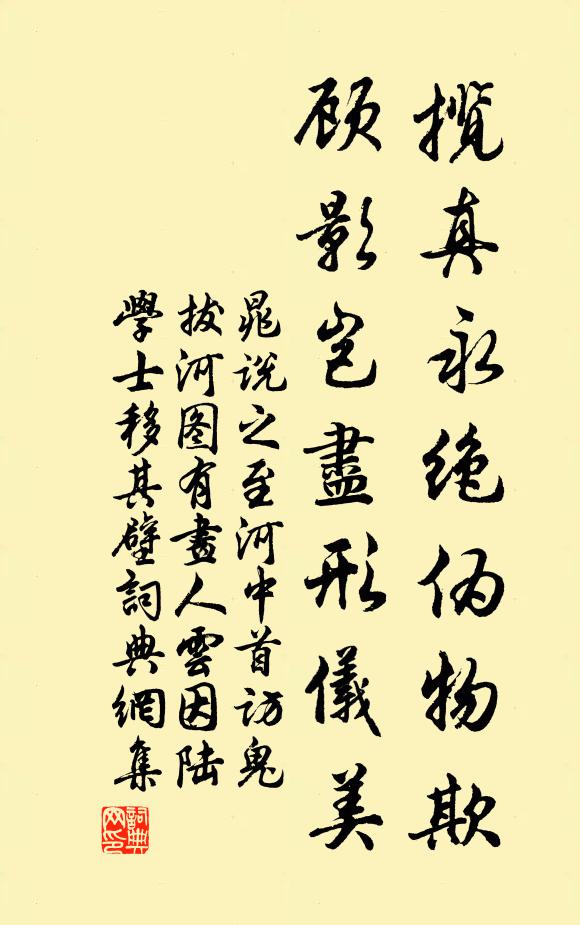 揽真永绝伪物欺
顾影岂盡形儀美
晁说之至河中首访鬼
拔河图有畫人雲因陆
學士移其壁詞典網集
詞典网印